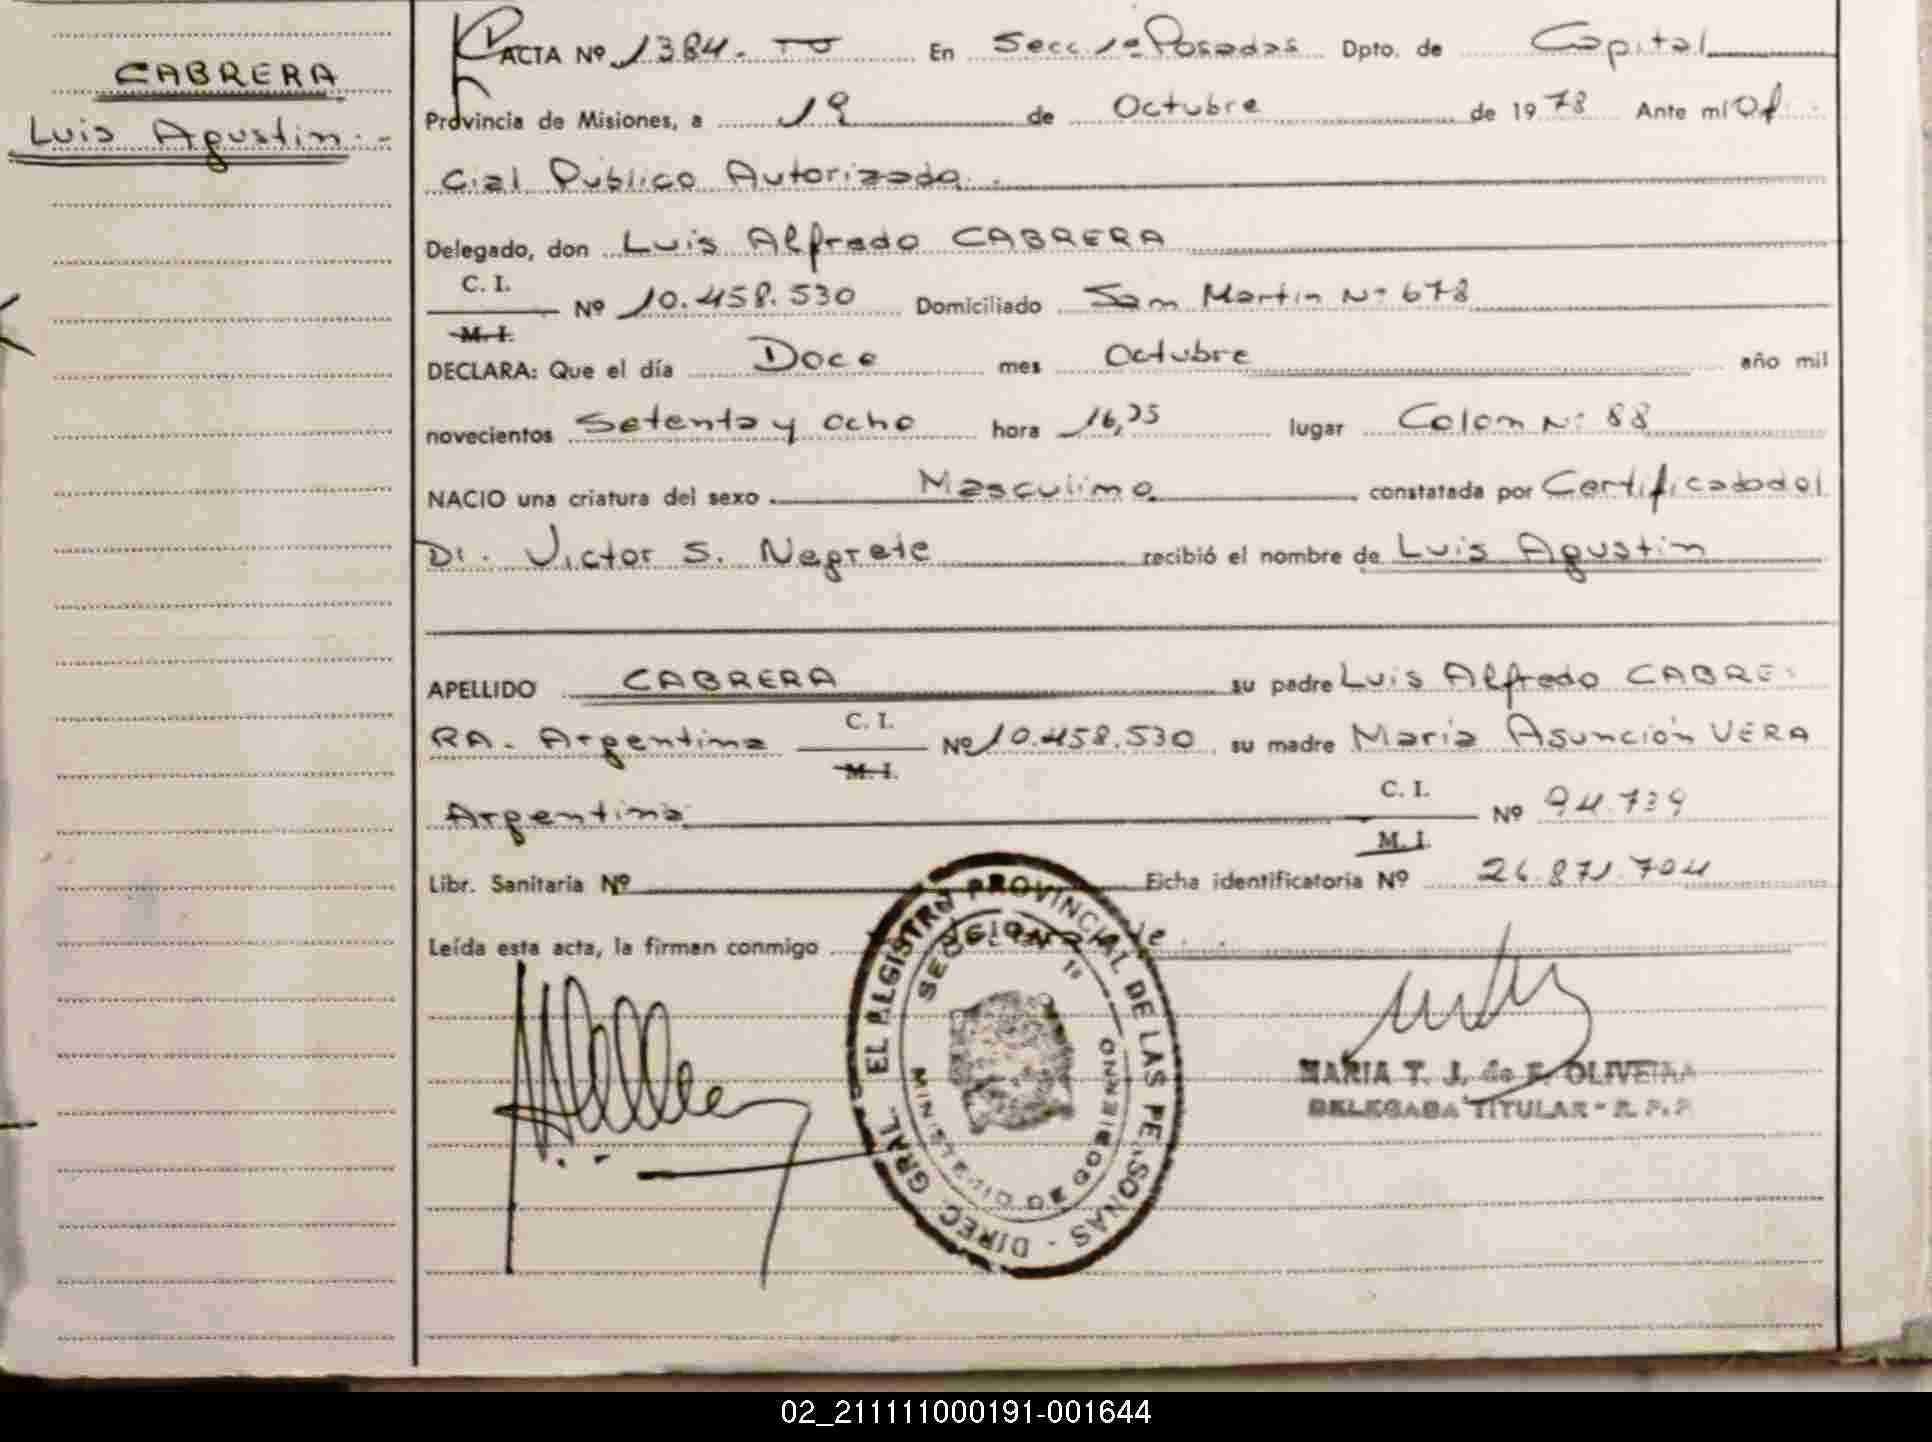 CABRERA
Luis Agustin.-
ACTA Nº 1384.- En Secc. 1ª Posadas Dpto. de Capital
Provincia de Misiones, a 19 de Octubre de 1978 Ante mí Ofi
cial Publico Autorizado.
Delegado, don Luis Alfredo CABRERA
C. I.
Nº 10.458.530 Domiciliado San Martin Nº 678
M. I.
DECLARA: Que el día Doce mes Octubre año mil
novecientos Setenta y ocho hora 16,35 lugar Colon Nº 88
NACIO una criatura del sexo Masculino constatada por Certificado del
Dr. Victor S. Negrete recibió el nombre de Luis Agustin
APELLIDO CABRERA su padre Luis Alfredo CABRE-
RA. Argentina C. I. Nº 10.458.530 su madre Maria Asunción VERA
M. I.
Argentina C. I. Nº 94.739
M. I.
Libr. Sanitaria Nº Ficha identificatoria Nº 26.871.704
Leída esta acta, la firman conmigo
DIREC. GRAL. EL REGISTRO PROVINCIAL DE LAS PERSONAS -
SECCION 1ª
MINISTERIO DE GOBIERNO
MARIA T. J. de F. OLIVEIRA
DELEGADA TITULAR - R. P. P.
02_211111000191-001644